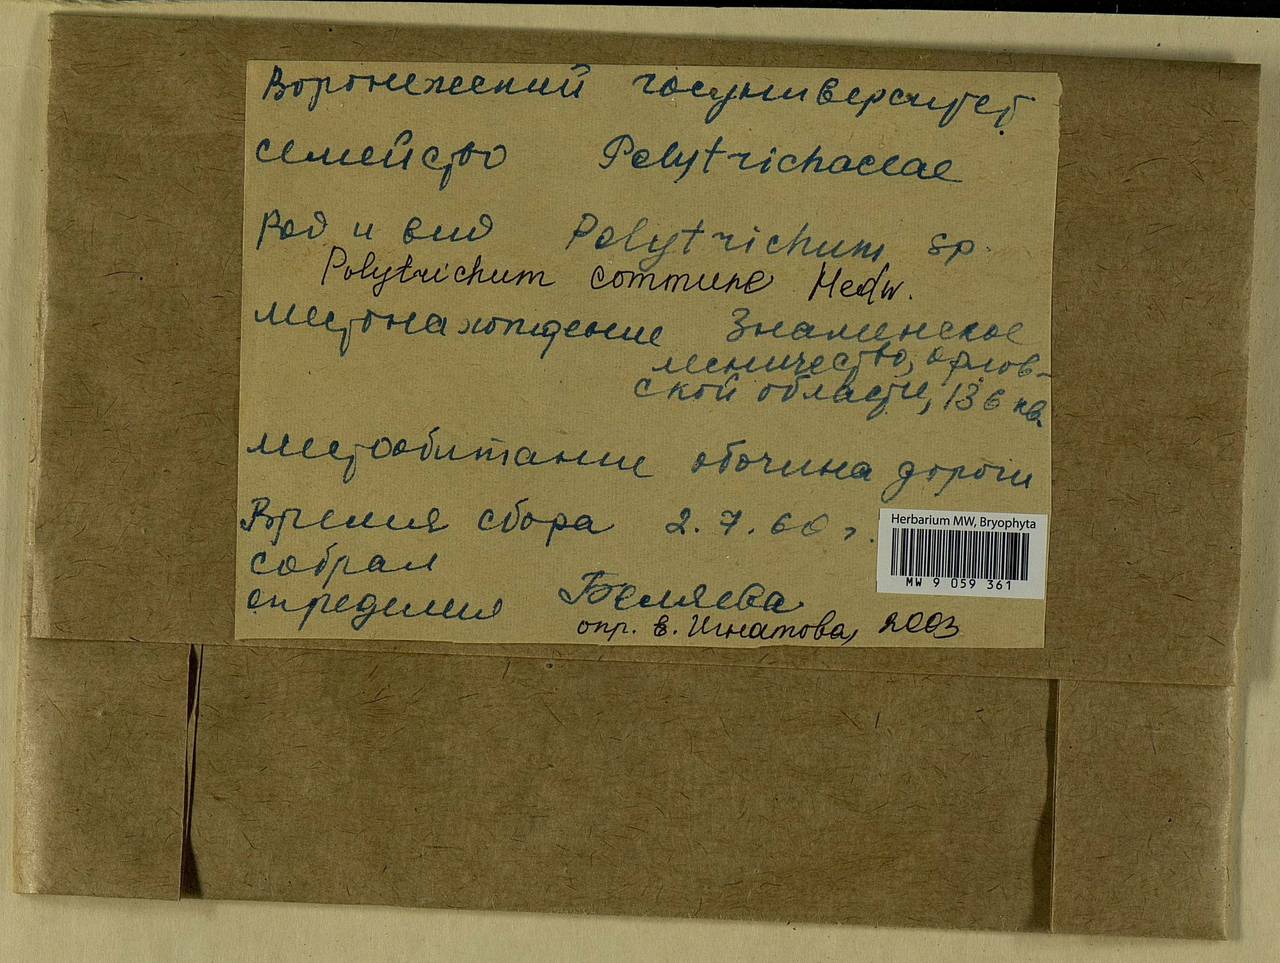 Воронежский госуниверситет.
семейство Polytrichaceae
Род и вид Polytrichum sp.
Polytrichum commune Hedw.
местонахождение Знаменское
лесничество, орлов-
ской области, 136 кв.
местообитание обочина дороги
Время сбора 2.7.60 г.
собрал
определил Беляева
опр. Е. Игнатова, 2003
Herbarium MW, Bryophyta
MW 9 059 361